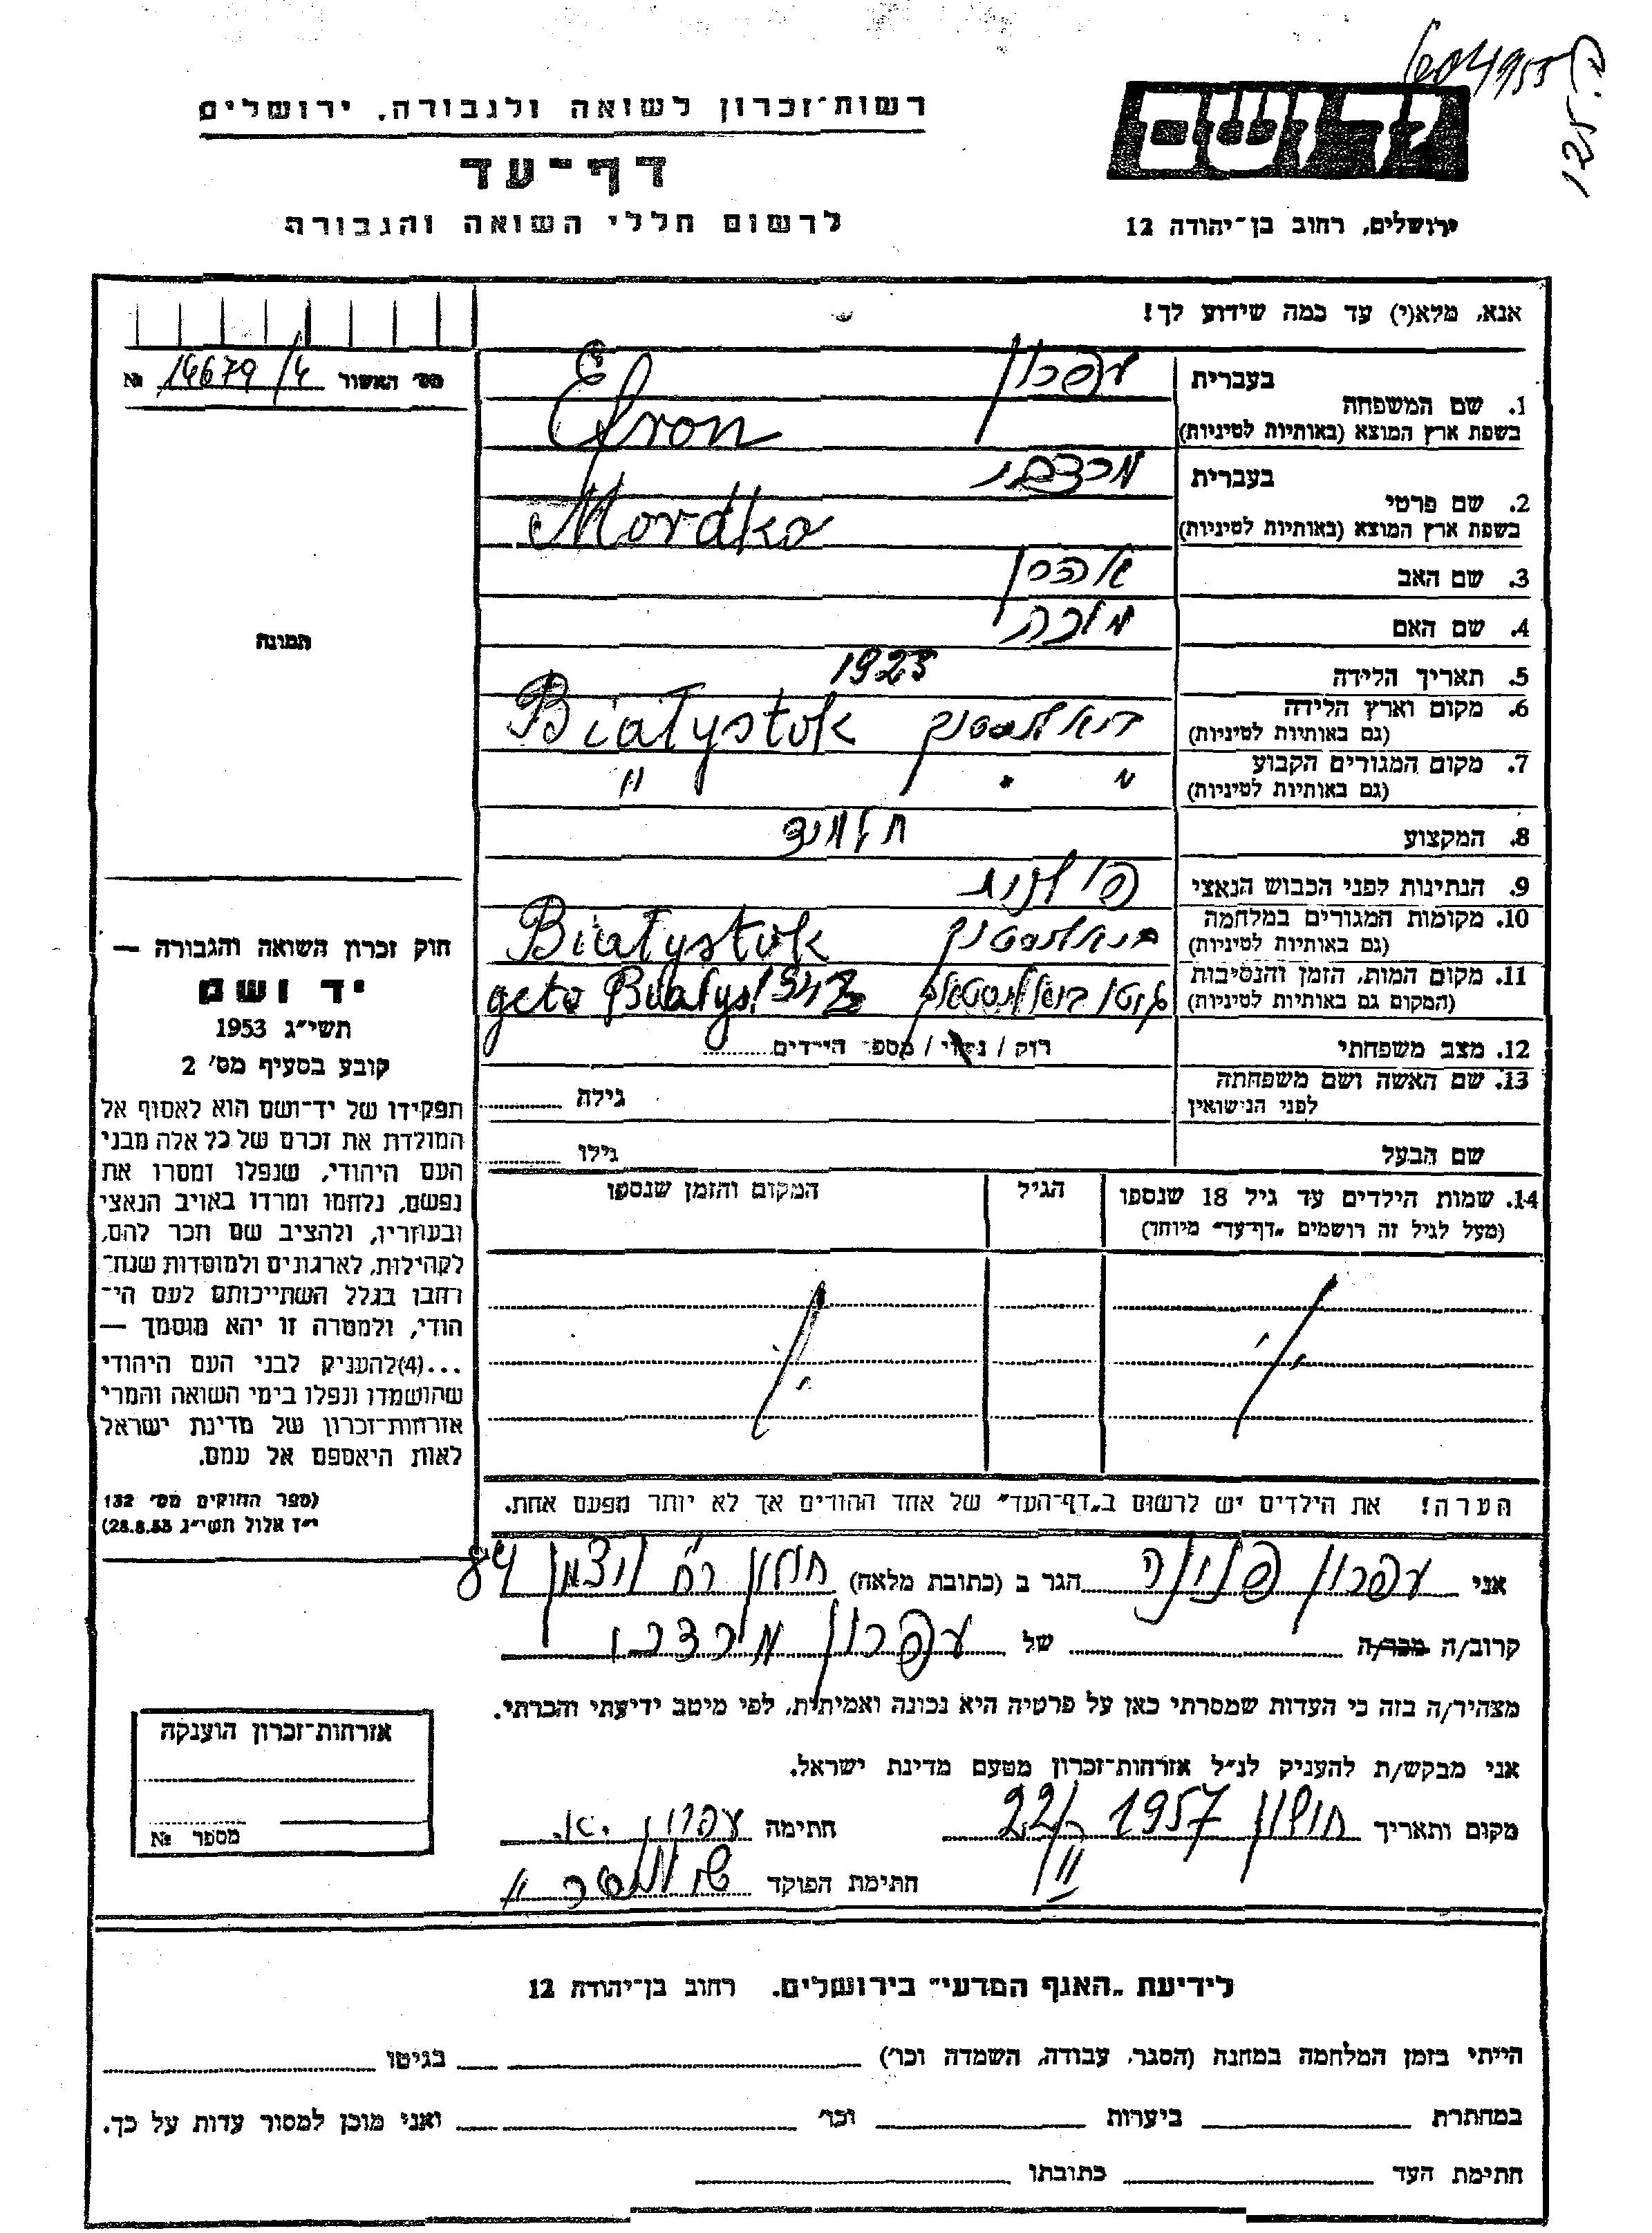 604955
רשות־זכרון לשואה ולגבורה, ירושלים
דף־עד
לרשום חללי השואה והגבורה
יד ושם
ירושלים, רחוב בן־יהודה 12
אנא, מלא(י) עד כמה שידוע לך!
מס׳ האשור 16679/4 №
1. שם המשפחה
בעברית עפרון
בשפת ארץ המוצא (באותיות לטיניות) Efron
2. שם פרטי
בעברית מרדכי
בשפת ארץ המוצא (באותיות לטיניות) Mordko
3. שם האב אהרון
4. שם האם מלכה
5. תאריך הלידה 1923
6. מקום וארץ הלידה
(גם באותיות לטיניות) ביאליסטוק Białystok
7. מקום המגורים הקבוע
(גם באותיות לטיניות) " " "
8. המקצוע תלמיד
9. הנתינות לפני הכבוש הנאצי פולנית
10. מקומות המגורים במלחמה
(גם באותיות לטיניות) ביאליסטוק Białystok
11. מקום המות, הזמן והנסיבות
(המקום גם באותיות לטיניות) גטו geto Białyst 1943
12. מצב משפחתי רוק / נשוי / מספר הילדים
13. שם האשה ושם משפחתה
לפני הנישואין גילה
שם הבעל גילו
14. שמות הילדים עד גיל 18 שנספו הגיל המקום והזמן שנספו
(מעל לגיל זה רושמים „דף־עד" מיוחד)
הערה! את הילדים יש לרשום ב„דף־העד" של אחד ההורים אך לא יותר מפעם אחת.
תמונה
חוק זכרון השואה והגבורה —
יד ושם
תשי״ג 1953
קובע בסעיף מס׳ 2
תפקידו של יד־ושם הוא לאסוף אל
המולדת את זכרם של כל אלה מבני
העם היהודי, שנפלו ומסרו את
נפשם, נלחמו ומרדו באויב הנאצי
ובעוזריו, ולהציב שם וזכר להם,
לקהילות, לארגונים ולמוסדות שנח־
רבו בגלל השתייכותם לעם הי־
הודי, ולמטרה זו יהא מוסמך —
...(4)להעניק לבני העם היהודי
שהושמדו ונפלו בימי השואה והמרי
אזרחות־זכרון של מדינת ישראל
לאות היאספם אל עמם.
(ספר החוקים מס׳ 132
י״ז אלול תשי״ג 28.8.53)
אני עפרון פנינה הגר ב (כתובת מלאה) חולון רח׳ ויצמן 84
קרוב/ה מכר/ה של עפרון מרדכי
מצהיר/ה בזה כי העדות שמסרתי כאן על פרטיה היא נכונה ואמיתית, לפי מיטב ידיעתי והכרתי.
אני מבקש/ת להעניק לנ״ל אזרחות־זכרון מטעם מדינת ישראל.
מקום ותאריך חולון 1957 22/II חתימה עפרון
חתימת הפוקד
אזרחות־זכרון הוענקה
מספר №
לידיעת „האגף המדעי" בירושלים. רחוב בן־יהודה 12
הייתי בזמן המלחמה במחנה (הסגר, עבודה, השמדה וכר) בגיטו
במחתרת ביערות וכר׳ ואני מוכן למסור עדות על כך.
חתימת העד כתובתו